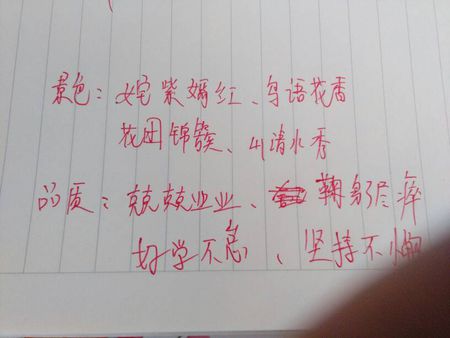 景色：姹紫嫣红、鸟语花香
花团锦簇、山清水秀
品质：兢兢业业、鞠躬尽瘁
好学不怠、坚持不懈